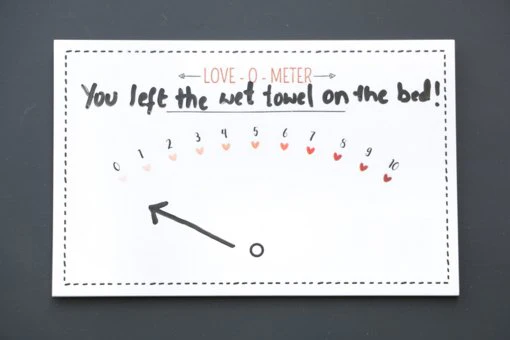 LOVE - O - METER
You left the wet towel on the bed!
0 1 2 3 4 5 6 7 8 9 10